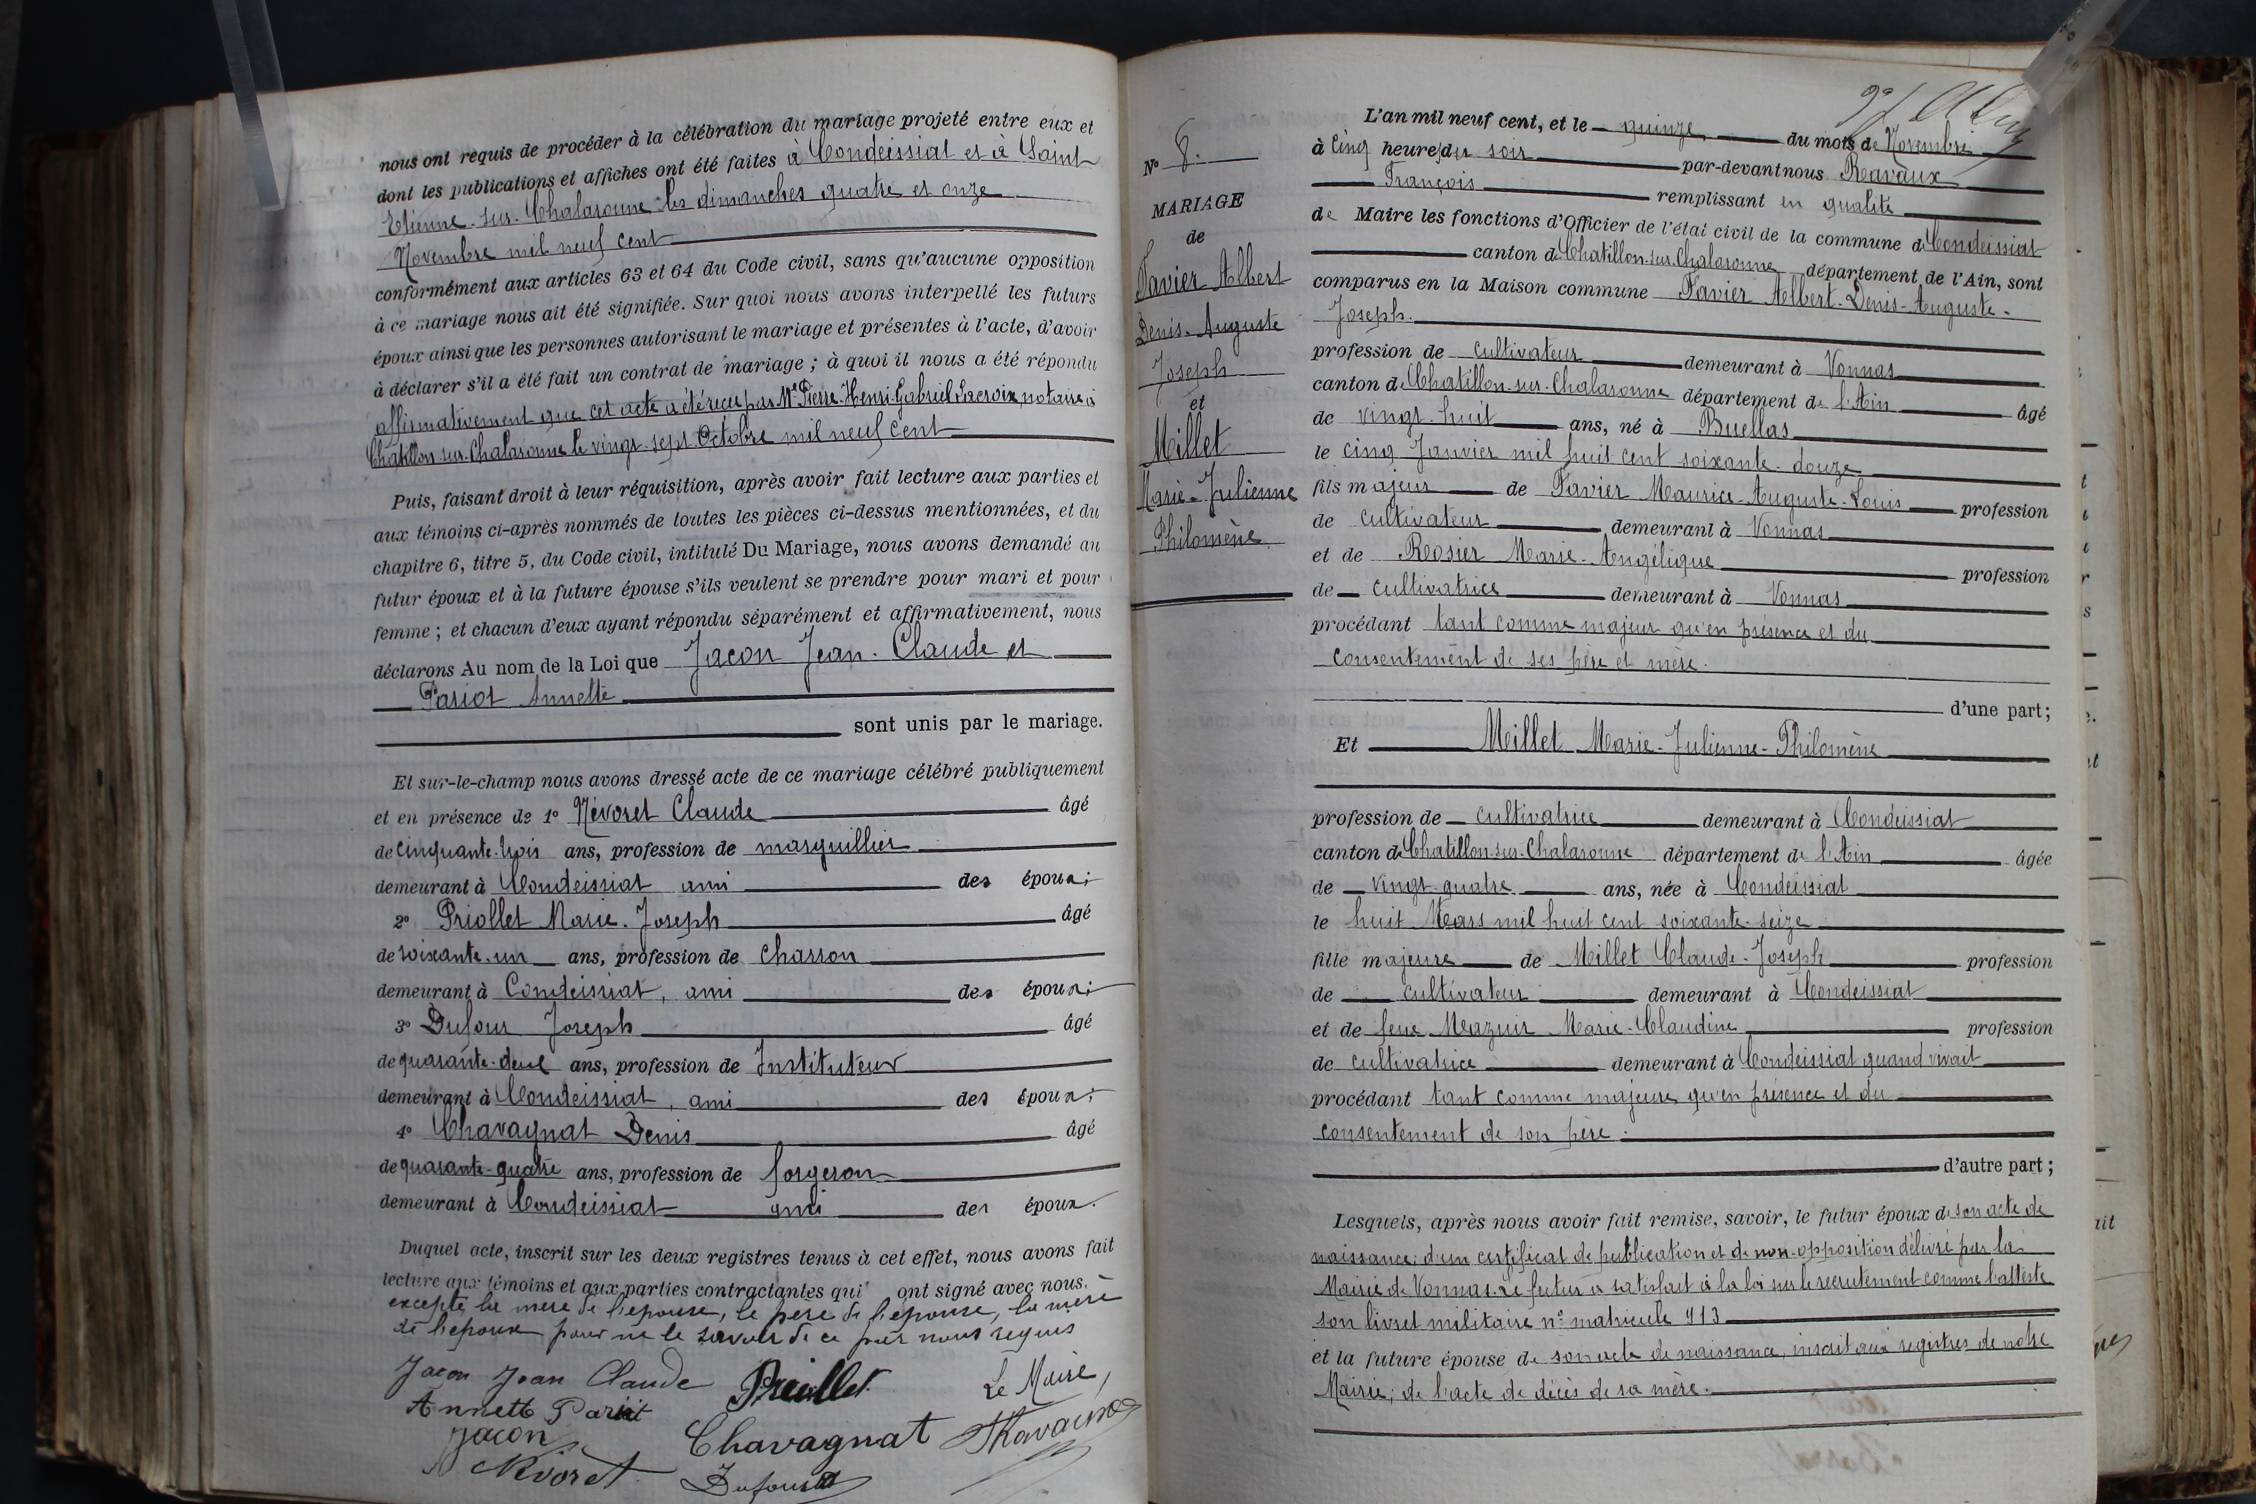 nous ont requis de procéder à la célébration du mariage projeté entre eux et
dont les publications et affiches ont été faites à Condeissiat et à Saint
Etienne-sur-Chalaronne les dimanches quatre et onze
Novembre mil neuf cent
conformément aux articles 63 et 64 du Code civil, sans qu'aucune opposition
à ce mariage nous ait été signifiée. Sur quoi nous avons interpellé les futurs
époux ainsi que les personnes autorisant le mariage et présentes à l'acte, d'avoir
à déclarer s'il a été fait un contrat de mariage ; à quoi il nous a été répondu
affirmativement que cet acte a été reçu par Me Pierre-Henri-Gabriel Lacroix, notaire à
Châtillon-sur-Chalaronne le vingt-sept Octobre mil neuf cent
Puis, faisant droit à leur réquisition, après avoir fait lecture aux parties et
aux témoins ci-après nommés de toutes les pièces ci-dessus mentionnées, et du
chapitre 6, titre 5, du Code civil, intitulé Du Mariage, nous avons demandé au
futur époux et à la future épouse s'ils veulent se prendre pour mari et pour
femme ; et chacun d'eux ayant répondu séparément et affirmativement, nous
déclarons Au nom de la Loi que Jacon Jean-Claude et
Pariot Annette
sont unis par le mariage.
Et sur-le-champ nous avons dressé acte de ce mariage célébré publiquement
et en présence de 1° Névoret Claude âgé
de cinquante-trois ans, profession de marguillier
demeurant à Condeissiat ami des époux ;
2° Priollet Marie-Joseph âgé
de soixante-un ans, profession de charron
demeurant à Condeissiat, ami des époux ;
3° Dufour Joseph âgé
de quarante-deux ans, profession de Instituteur
demeurant à Condeissiat, ami des époux ;
4° Chavagnat Denis âgé
de quarante-quatre ans, profession de forgeron
demeurant à Condeissiat ami des époux.
Duquel acte, inscrit sur les deux registres tenus à cet effet, nous avons fait
lecture aux témoins et aux parties contractantes qui ont signé avec nous.
excepté la mère de l'épouse, le père de l'épouse, la mère
de l'époux pour ne le savoir de ce par nous requis
Jacon Jean Claude Priollet Le Maire,
Annette Pariot
Jacon Chavagnat
Nevoret Dufour
N° 8.
MARIAGE
de
Favier Albert
Denis-Auguste
Joseph
et
Millet
Marie-Julienne
Philomène
L'an mil neuf cent, et le quinze du mois de Novembre
à cinq heures du soir par-devant nous Ravaux
François remplissant en qualité
de Maire les fonctions d'Officier de l'état civil de la commune de Condeissiat
canton de Chatillon-sur-Chalaronne département de l'Ain, sont
comparus en la Maison commune Favier Albert-Denis-Auguste-
Joseph.
profession de cultivateur demeurant à Vonnas
canton de Chatillon-sur-Chalaronne département de l'Ain âgé
de vingt-huit ans, né à Buellas
le cinq Janvier mil huit cent soixante-douze
fils majeur de Favier Maurice-Auguste-Louis profession
de cultivateur demeurant à Vonnas
et de Rosier Marie-Angélique profession
de cultivatrice demeurant à Vonnas
procédant tant comme majeur qu'en présence et du
consentement de ses père et mère.
d'une part ;
Et Millet Marie-Julienne-Philomène
profession de cultivatrice demeurant à Condeissiat
canton de Chatillon-sur-Chalaronne département de l'Ain âgée
de vingt-quatre ans, née à Condeissiat
le huit Mars mil huit cent soixante-seize
fille majeure de Millet Claude-Joseph profession
de cultivateur demeurant à Condeissiat
et de feue Mazuir Marie-Claudine profession
de cultivatrice demeurant à Condeissiat quand vivait
procédant tant comme majeure qu'en présence et du
consentement de son père.
d'autre part ;
Lesquels, après nous avoir fait remise, savoir, le futur époux de son acte de
naissance ; d'un certificat de publication et de non-opposition délivré par la
Mairie de Vonnas. Le futur a satisfait à la loi sur le recrutement comme l'atteste
son livret militaire n° matricule 913
et la future épouse de son acte de naissance, inscrit aux registres de notre
Mairie ; de l'acte de décès de sa mère.